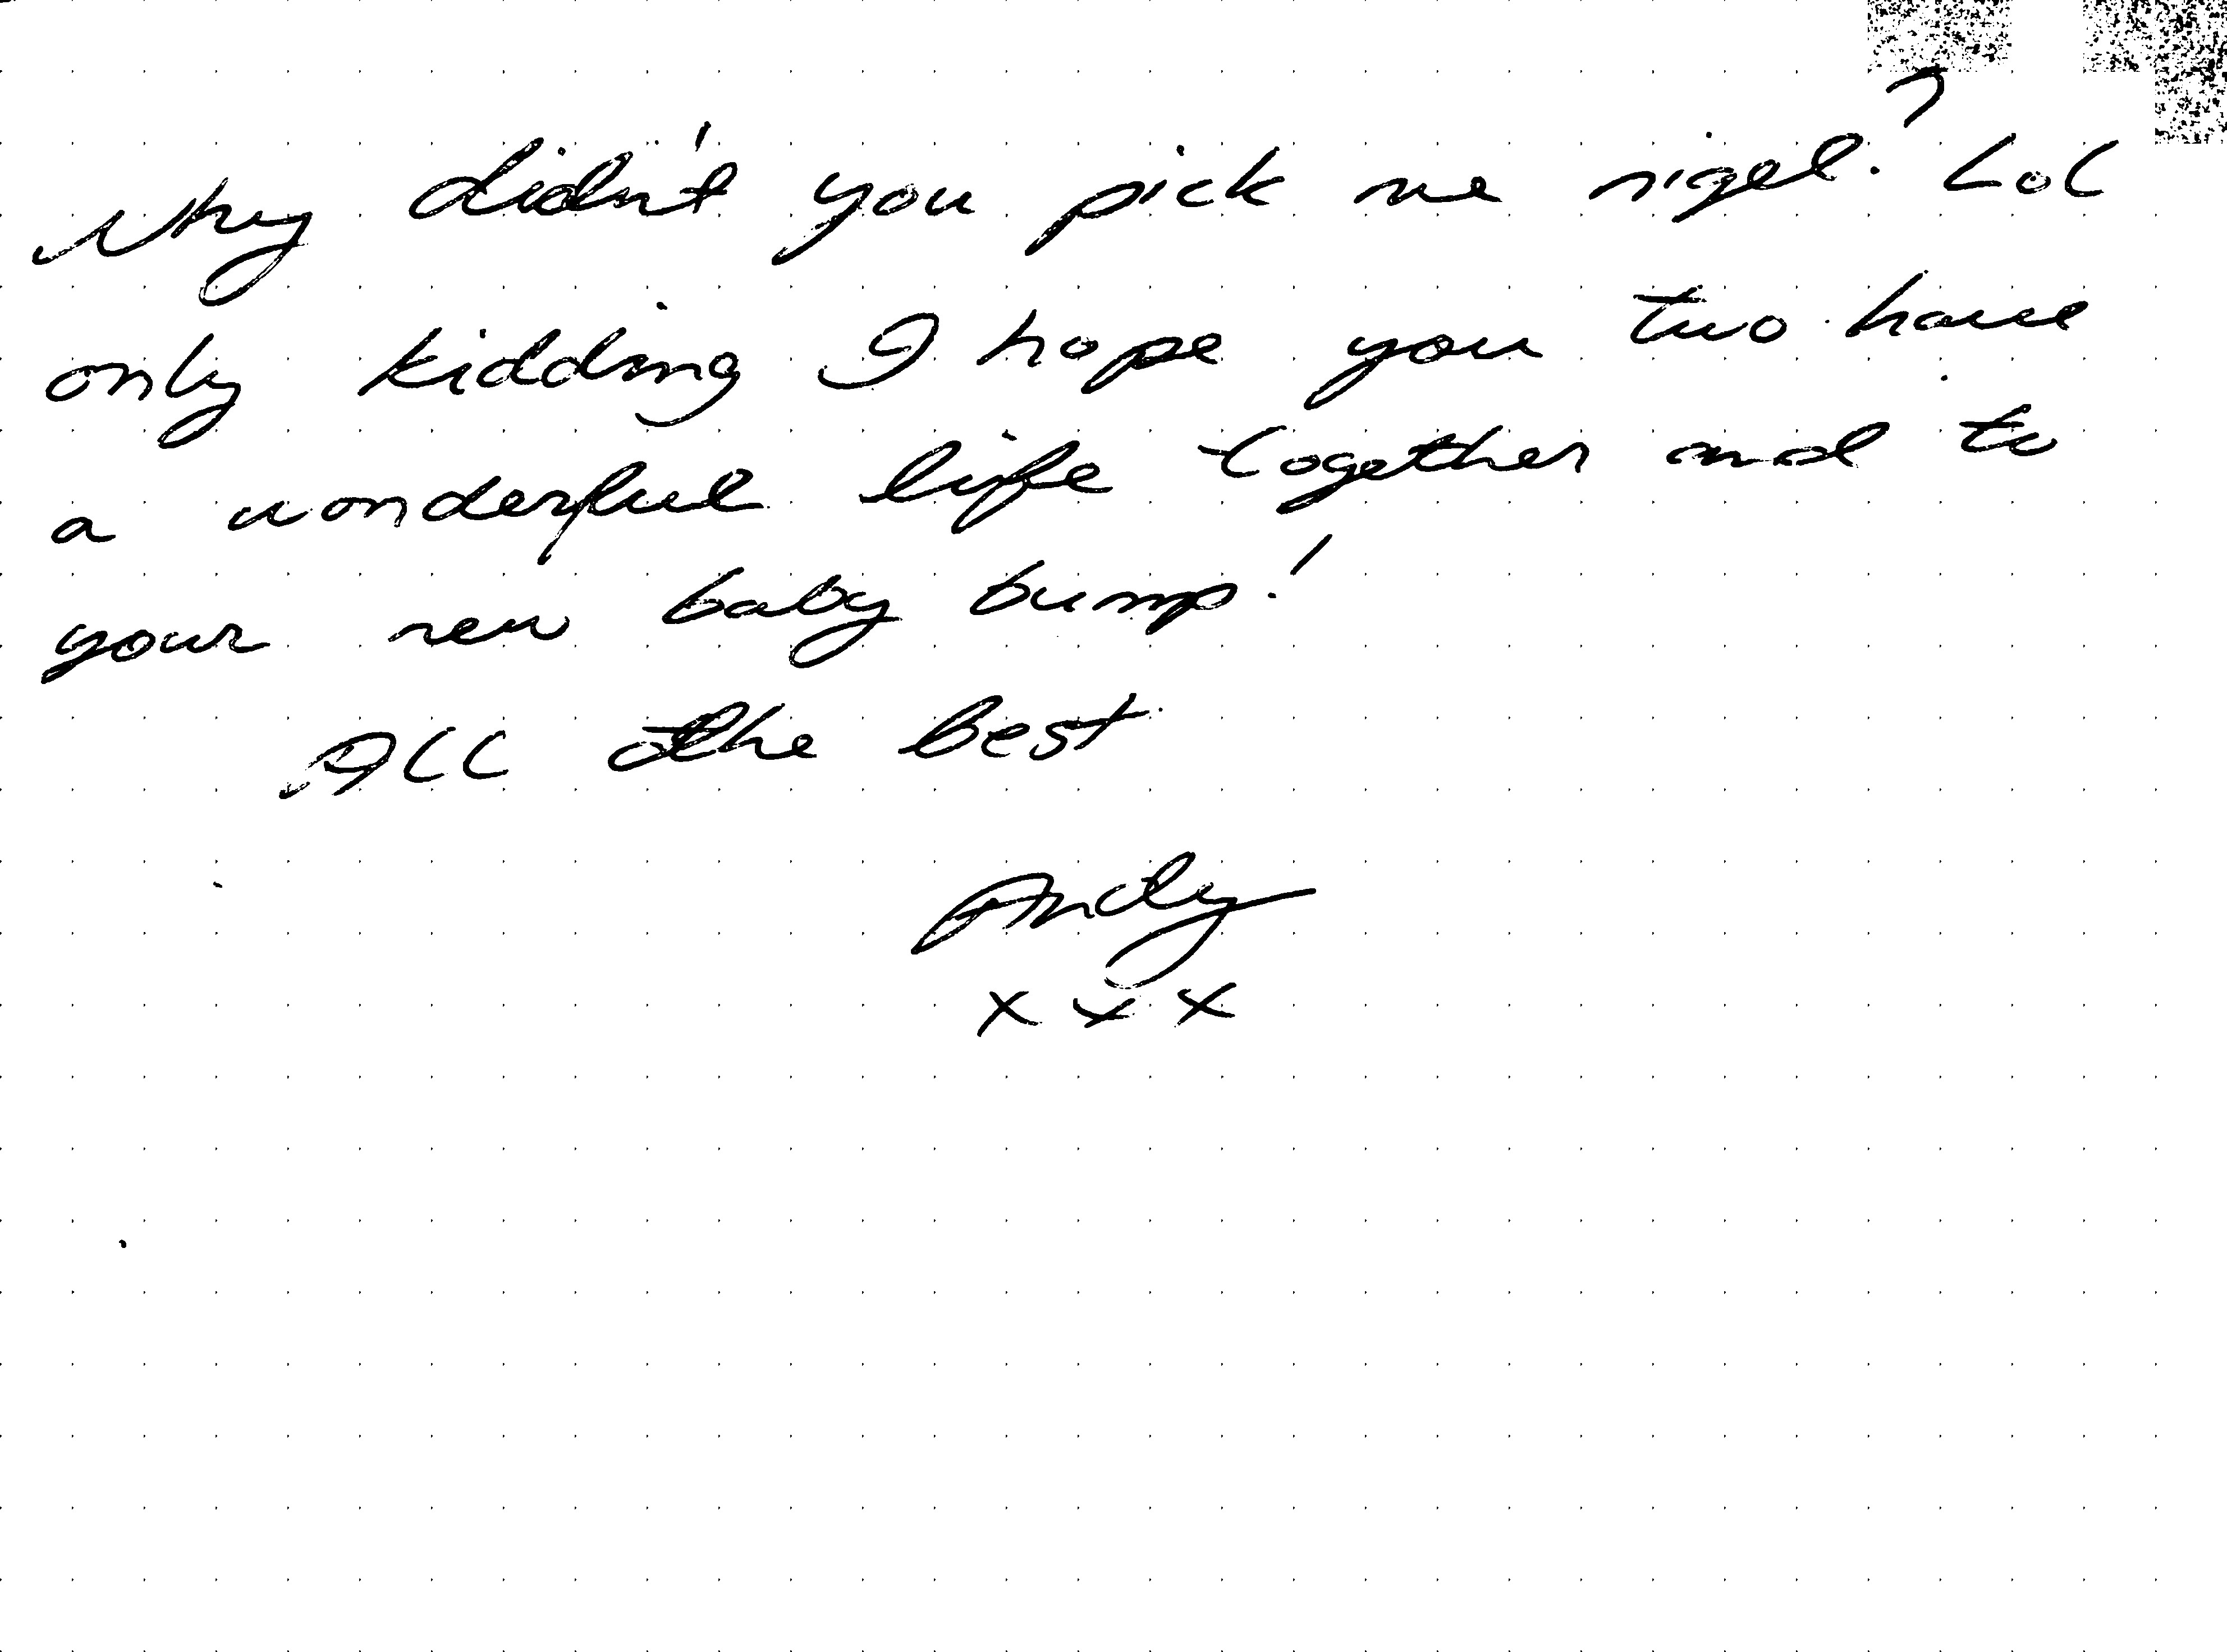 Why didn't you pick me nigel? LoL
only kidding I hope you two have
a wonderful life together and to
your new baby bump!
All the best
Andy
x x x